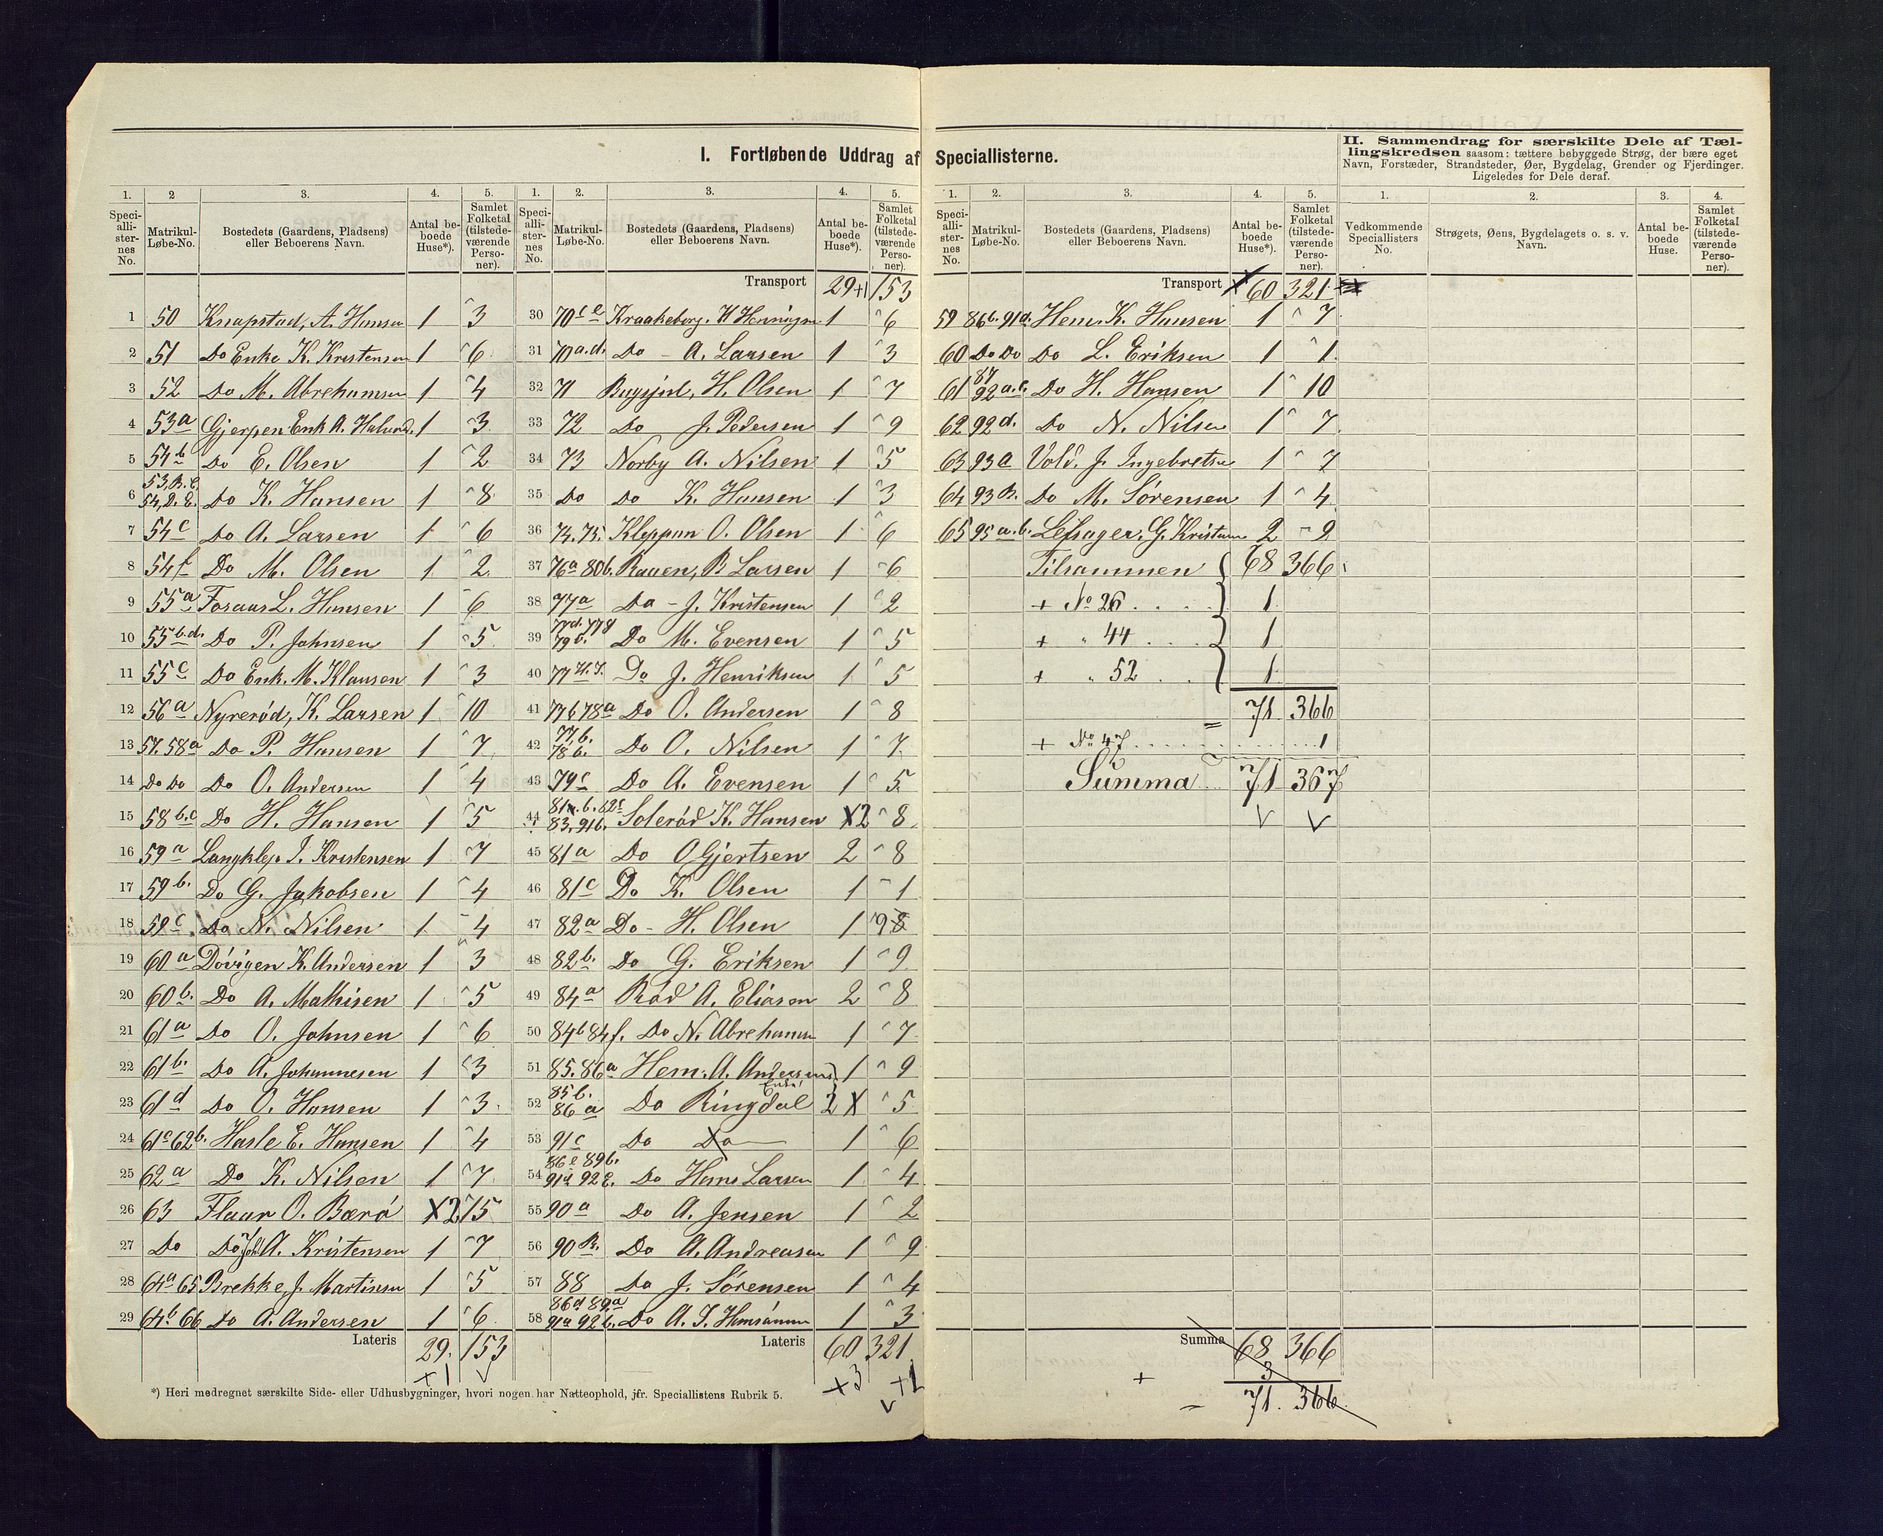 I. Fortløbende Uddrag af Speciallisterne.
II. Sammendrag for særskilte Dele af Tællingskredsen saasom: tættere bebyggede Strøg, der bære eget Navn, Forstæder, Strandsteder, Øer, Bygdelag, Grender og Fjerdinger. Ligeledes for Dele deraf.
1. 2 3. 4. 5.
Speciallisternes No. Matrikul-Løbe-No. Bostedets (Gaardens, Pladsens) eller Beboerens Navn. Antal beboede Huse*). Samlet Folketal (tilstedeværende Personer).
1 50 Knapstad, A. Hansen 1 3
2 51 Do Enke K. Kristensen 1 6
3 52 Do M. Abrehamsen 1 4
4 53a Gjerpen Enk A. Halvord. 1 3
5 54b Do E. Olsen 1 2
6 53,B.C. 54,D.E. Do K. Hansen 1 8
7 54c Do A. Larsen 1 6
8 54f Do M. Olsen 1 2
9 55a Foraas L. Hansen 1 6
10 55b.d. Do P. Johnsen 1 5
11 55c Do Enk. M. Klausen 1 3
12 56a Nyrerød, K. Larsen 1 10
13 57. 58a Do P. Hansen 1 7
14 Do Do Do O. Andersen 1 4
15 58b.c Do H. Hansen 1 5
16 59a Langklep I. Kristensen 1 7
17 59b. Do G. Jakobsen 1 4
18 59c Do N. Nilsen 1 4
19 60a Dövigen K. Andersen 1 3
20 60b. Do A. Mathisen 1 5
21 61a Do O. Johnsen 1 6
22 61b. Do A. Johannesen 1 3
23 61d Do O. Hansen 1 3
24 61c 62b. Hasle E. Hansen 1 4
25 62a Do K. Nilsen 1 7
26 63 Flaar O. Bærø X2 15
27 Do Do A. Kristensen 1 7
28 64a 65 Brekke, J. Martinsen 1 5
29 64b 66 Do A. Andersen 1 6
Lateris 29. 153
+1 v
*) Heri medregnet særskilte Side- eller Udhusbygninger, hvori nogen har Natteophold, jfr. Speciallistens Rubrik 5.
1. 2. 3. 4. 5.
Speciallisternes No. Matrikul-Løbe-No. Bostedets (Gaardens, Pladsens) eller Beboerens Navn. Antal beboede Huse*). Samlet Folketal (tilstedeværende Personer).
Transport 29+1 153
30 70c.e Kraakeborg. H Henningsen 1 6
31 70a.d. Do - A. Larsen 1 3
32 71 H. Olsen 1 7
33 72 Do J. Pedersen 1 9
34 73 Norby A. Nilsen 1 5
35 Do Do K. Hansen 1 3
36 74. 75. Kleppan O. Olsen 1 6
37 76a 80b. Rauen, B Larsen 1 6
38 77a Do - J. Kristensen 1 2
39 77d. 77g 79b. Do M. Evensen 1 5
40 77 H.I. Do J. Henriksen 1 5
41 77b 78a Do O. Andersen 1 8
42 77,b. 78b. Do O. Nilsen 1 7
43 79c Do A. Evensen 1 5
44 81a.b. 82c 83. 91b. Solerød K. Hansen X2 8
45 81a Do O Gjertsen 2 8
46 81c Do K. Olsen 1 1
47 82a Do - H. Olsen 1 9 8
48 82b. Do G. Eriksen 1 9
49 84a Rød A. Eliasen 2 8
50 84b 84f. Do N. Abrehamsen 1 7
51 85. 86a Hem. A. Andersen 1 9
52 85b. 86a Do Ringdal 2 X 5
53 91c Do Do 1 6
54 86e 89b. 91d 92e. Do Hans Larsen 1 4
55 90a Do A. Jensen 1 2
56 90B. Do A. Andreasen 1 9
57 88 Do J. Sørensen 1 4
58 86d. 89a 91a 92b. Do A. I. Hansen 1 3
Lateris 60 321
+3 +1
v
1. 2. 3. 4. 5.
Speciallisternes No. Matrikul-Løbe-No. Bostedets (Gaardens, Pladsens) eller Beboerens Navn. Antal beboede Huse*). Samlet Folketal (tilstedeværende Personer).
Transport 60 321
59 86b. 91d. Hem. K. Hansen 1 7
60 Do Do Do L. Eriksen 1 1
61 87 92a.c. Do H. Hansen 1 10
62 92d. Do N. Nilsen 1 7
63 93a Vold. J. Ingebretsen 1 7
64 93B. Do M. Sørensen 1 4
65 95a.b. Lefsager, G. Kristiansen 2 9
Tilsammen 68 366
+ No 26 1
+ " 44 1
+ " 52 1
= 71 366
+ No 47 1
Summa 71 367
v v
Summa 68 366
+ 3
= 71. 366
1. 2. 3. 4.
Vedkommende Speciallisters No. Strøgets, Øens, Bygdelagets o. s. v. Navn. Antal beboede Huse. Samlet Folketal (tilstedeværende Personer).